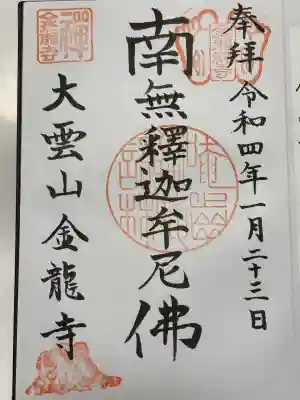 奉拝 令和四年一月二十三日
南無釋迦牟尼佛
大雲山金龍寺
禅